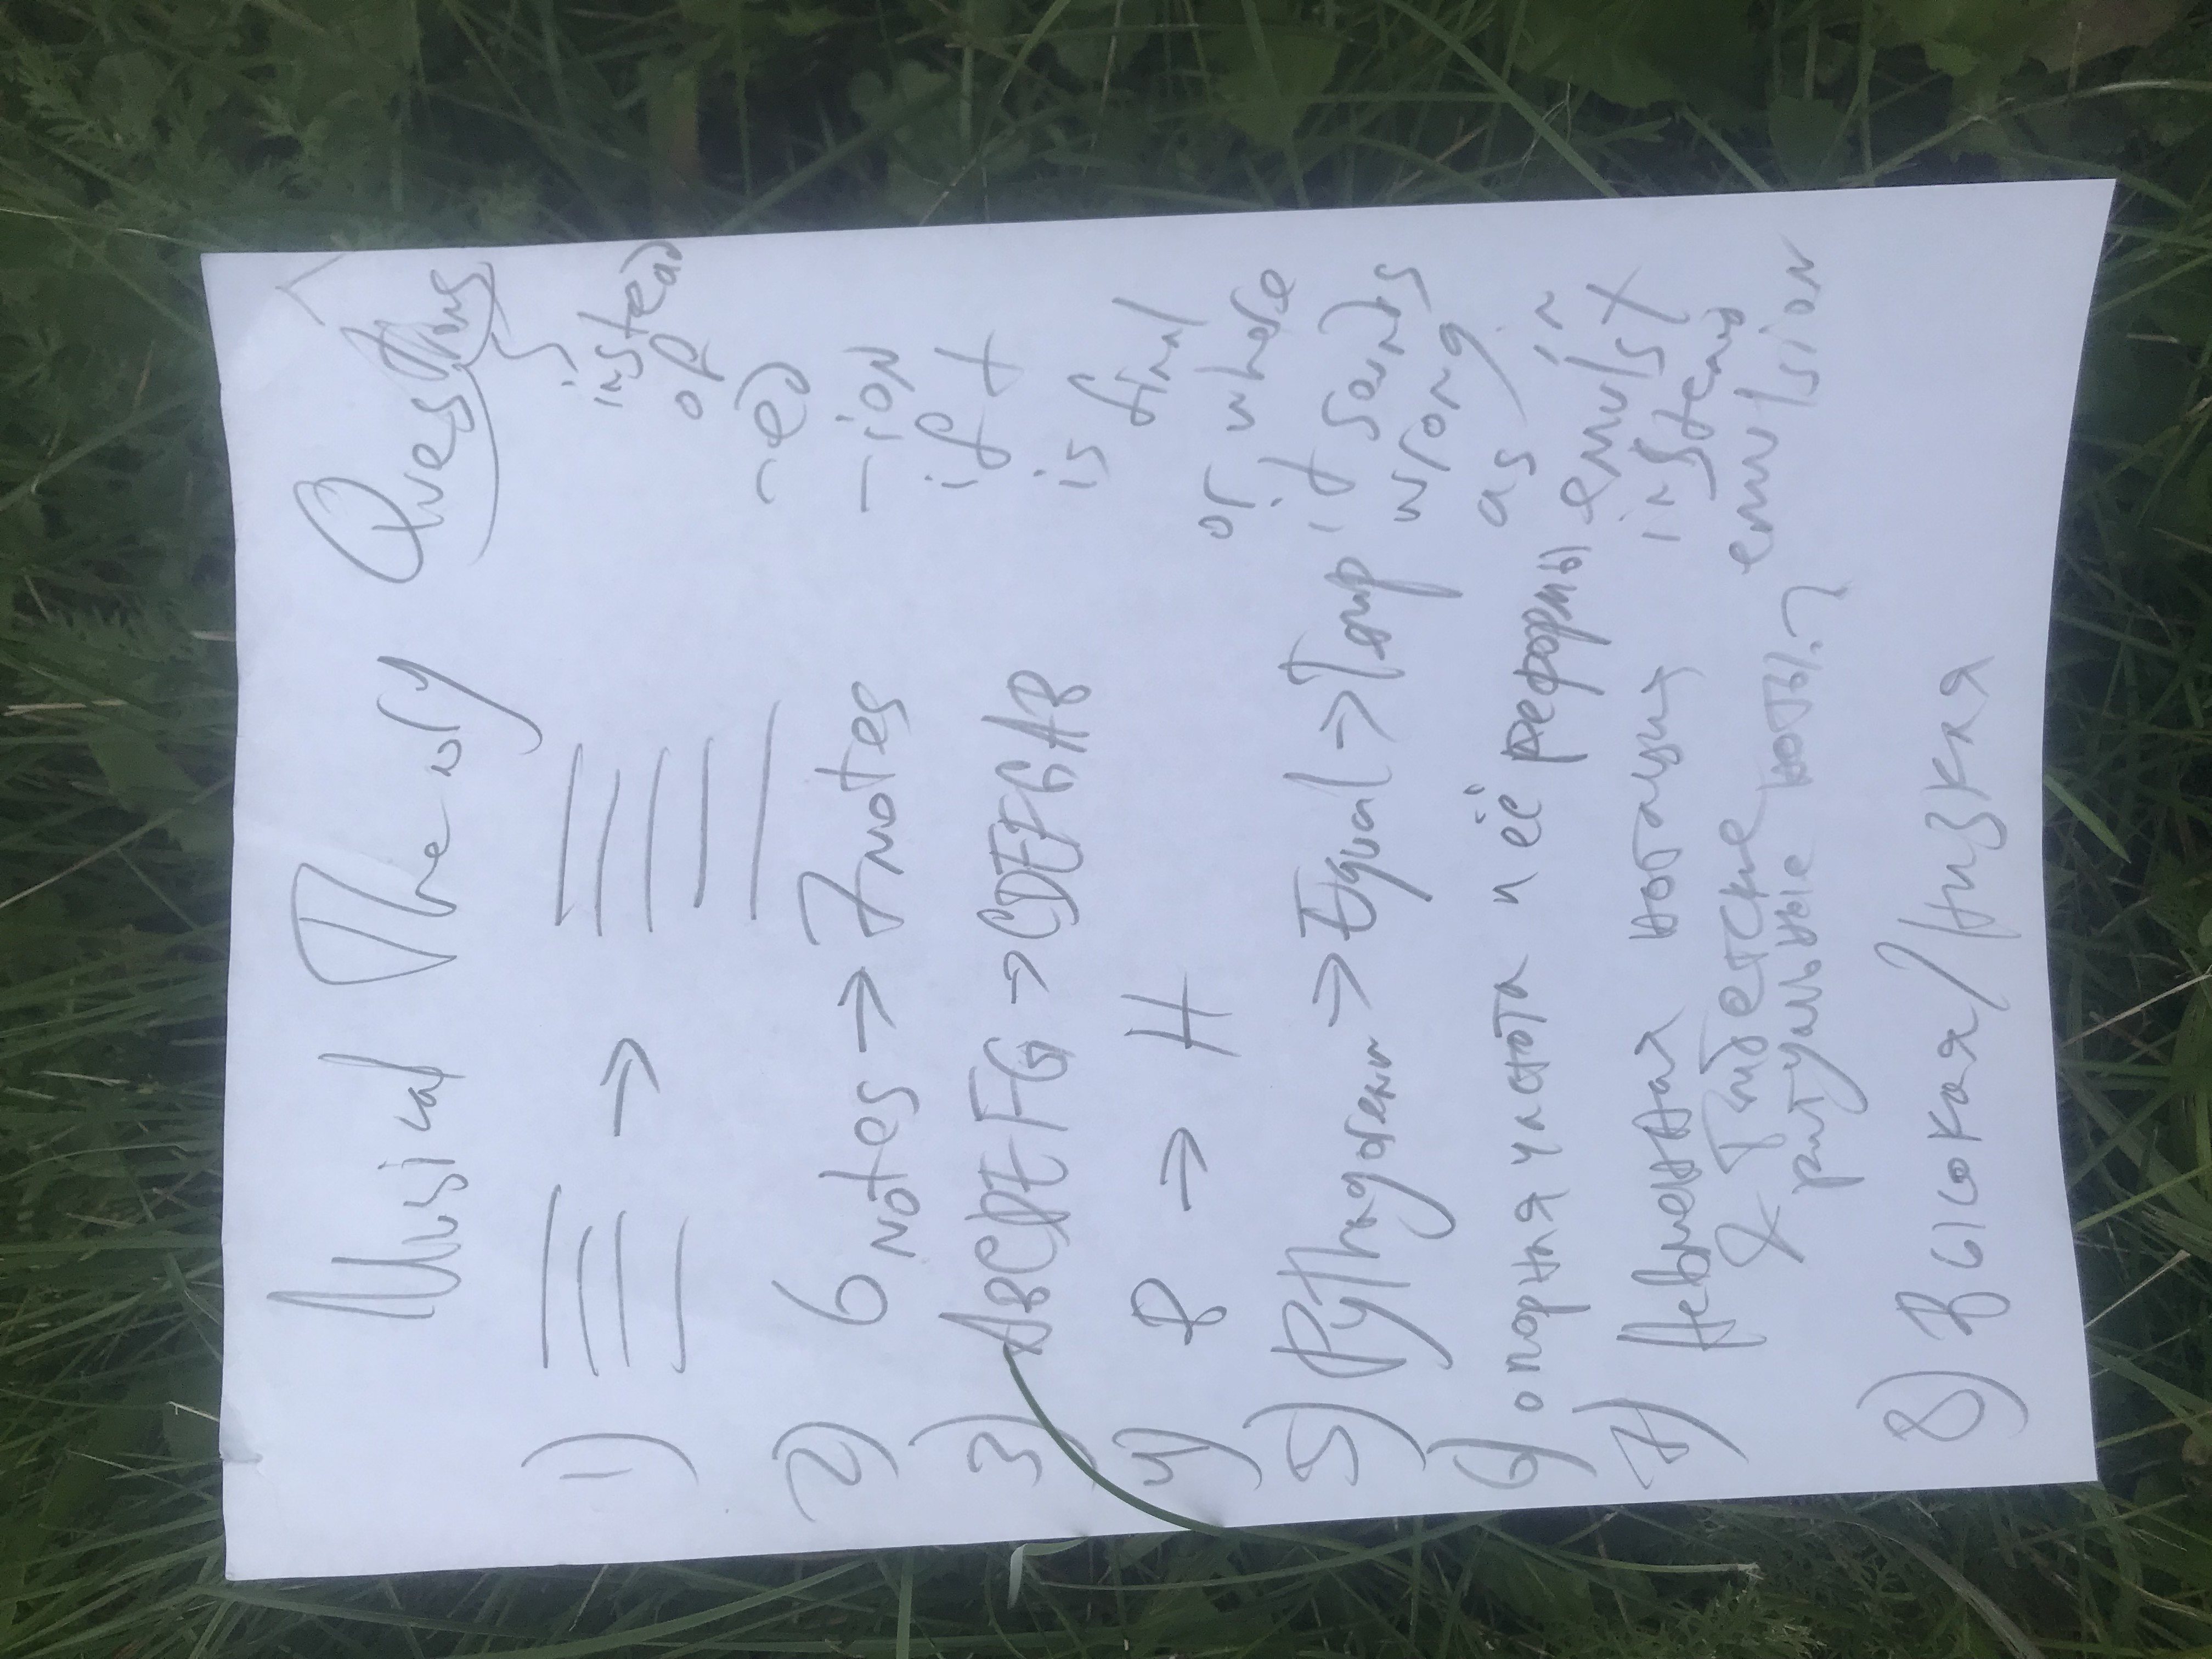 Musical Theory Questions
1) →
2) 6 notes → 7 notes
3) ABCDEFG → CDEFGAB
4) B → H
5) Pythagorean → Equal → Temp
6) опорная частота и её реформы
7) Невменная нотация
& Тибетские
ритуальные ноты?
8) Высокая/Низкая
instead
of
-ed
-ion
if t
is final
or where
it sounds
wrong
as in
emulst
instead
emulsion